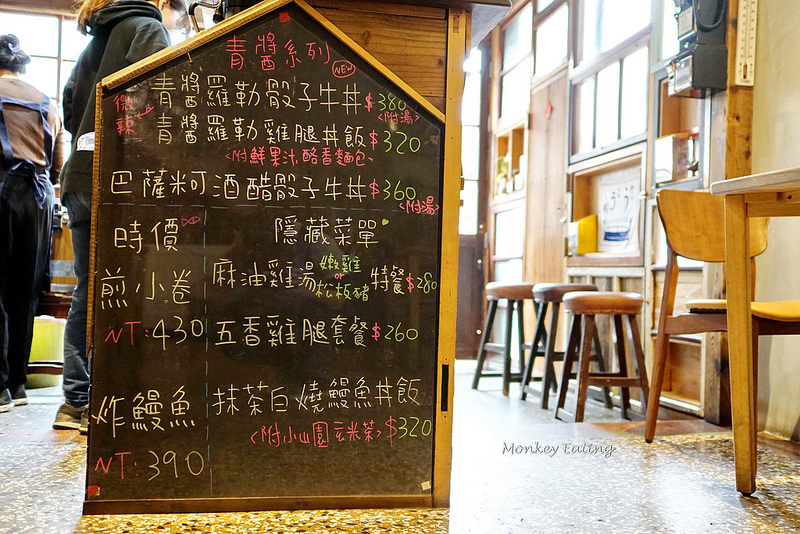 青醬系列
NEW
微辣
青醬羅勒骰子牛丼$380
<附湯>
青醬羅勒雞腿丼飯$320
<附鮮果汁,酪香麵包>
巴薩米可酒醋骰子牛丼$360
<附湯>
時價
煎小卷
NT:430
炸鰻魚
NT:390
隱藏菜單
麻油雞湯 嫩雞 or 松板豬 特餐$280
五香雞腿套餐$260
抹茶白燒鰻魚丼飯
<附小山園玄米茶>$320
Monkey Eating